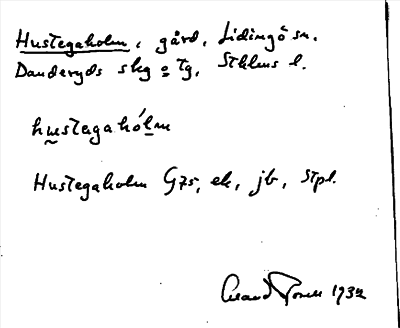 Hustegaholm, gård, Lidingö sn.
Danderyds skg o tg, Sthlms l.
hustegahólm
Hustegaholm G75, ek, jb, Stpl.
1932